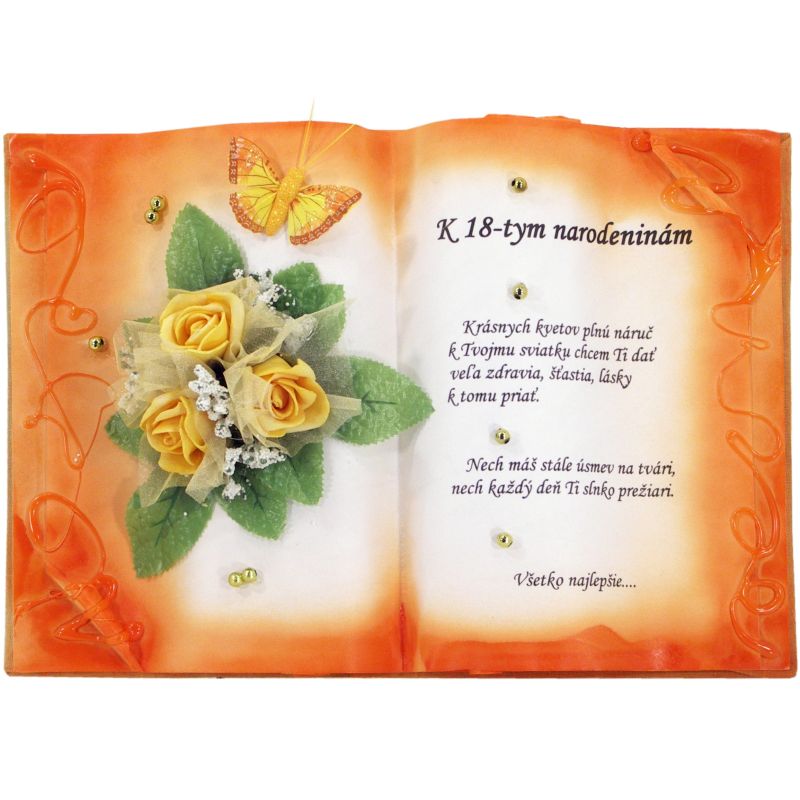 K 18-tym narodeninám
Krásnych kvetov plnú náruč
k Tvojmu sviatku chcem Ti dať
veľa zdravia, šťastia, lásky
k tomu priať.
Nech máš stále úsmev na tvári,
nech každý deň Ti slnko prežiari.
Všetko najlepšie....